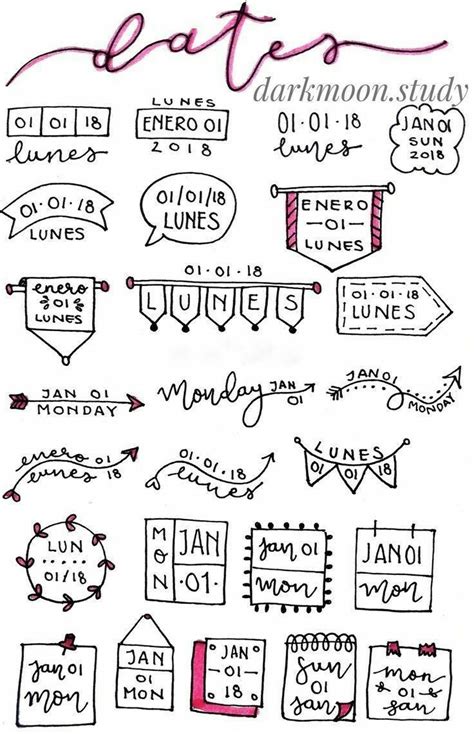 dates
darkmoon.study
01 01 18
lunes
LUNES
ENERO 01
2018
01·01·18
lunes
JAN 01
SUN
2018
01·01·18
LUNES
01/01/18
LUNES
ENERO
-01-
LUNES
enero
01
LUNES
01·01·18
LUNES
01·01·18
LUNES
JAN 01
MONDAY
monday JAN
01
JAN 01
MONDAY
enero 01
lunes 18
01·01·18
lunes
LUNES
01 01 18
LUN
01/18
MON
JAN
·01·
jan 01
mon
JAN 01
mon
jan 01
mon
JAN
01
MON
JAN
-01-
18
sun
01
jan
mon
·01·
jan